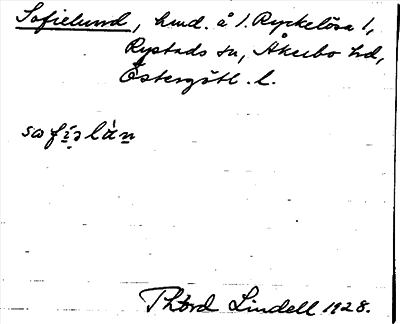 Sofielund, hmd. å 1. Ryckelösa 1,
Rystads sn, Åkerbo hd,
Östergötl. l.
Thord Lindell 1928.